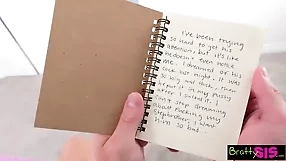 I've been trying
so hard to get his
attention, but it's like
he doesn't even notice
me. I dreamed of his
cock last night. It was
so big and thick, then
he put it in my pussy
after I it. I
can't stop dreaming
about fucking my
stepbrother. I want
him so bad...
BrattySIS